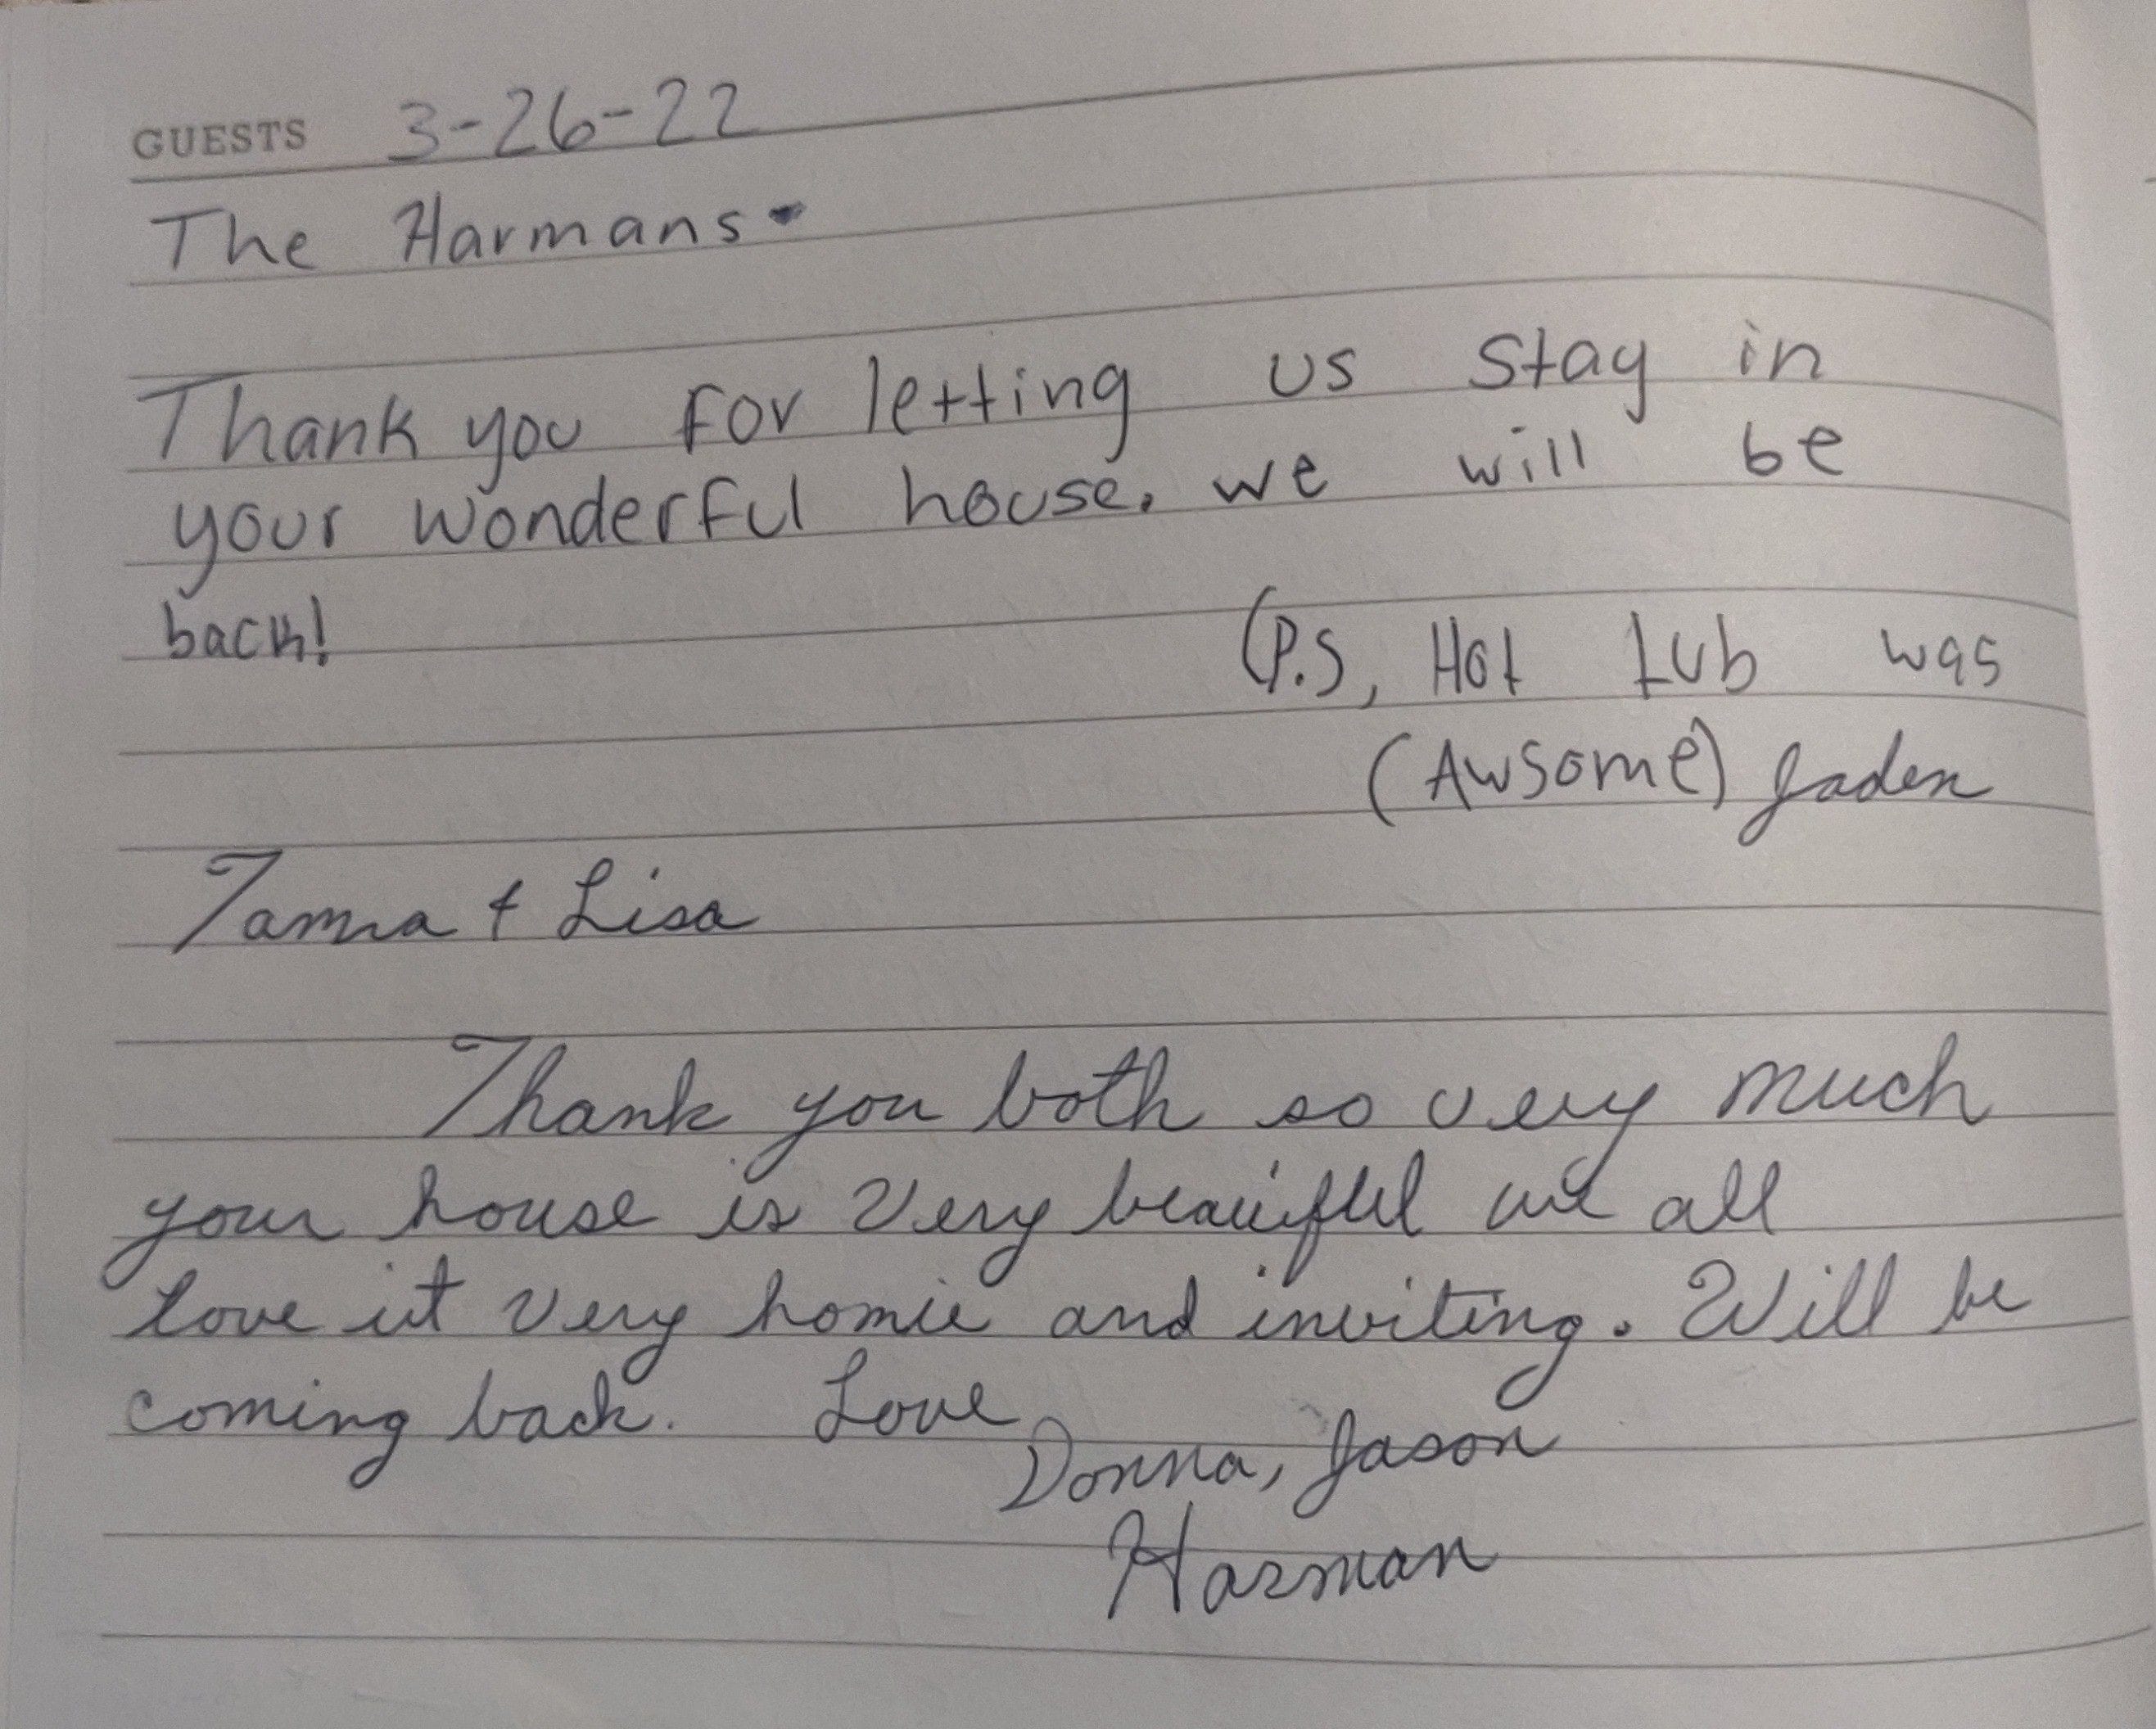 GUESTS 3-26-22
The Harmans-
Thank you For letting us Stay in
your wonderful house. we will be
back!
(P.S, Hot tub was
(Awsome) Jaden
Tamra & Lisa
Thank you both so very much
your house is very beautiful we all
love it very homie and inviting. Will be
coming back. Love
Donna, Jason
Harman